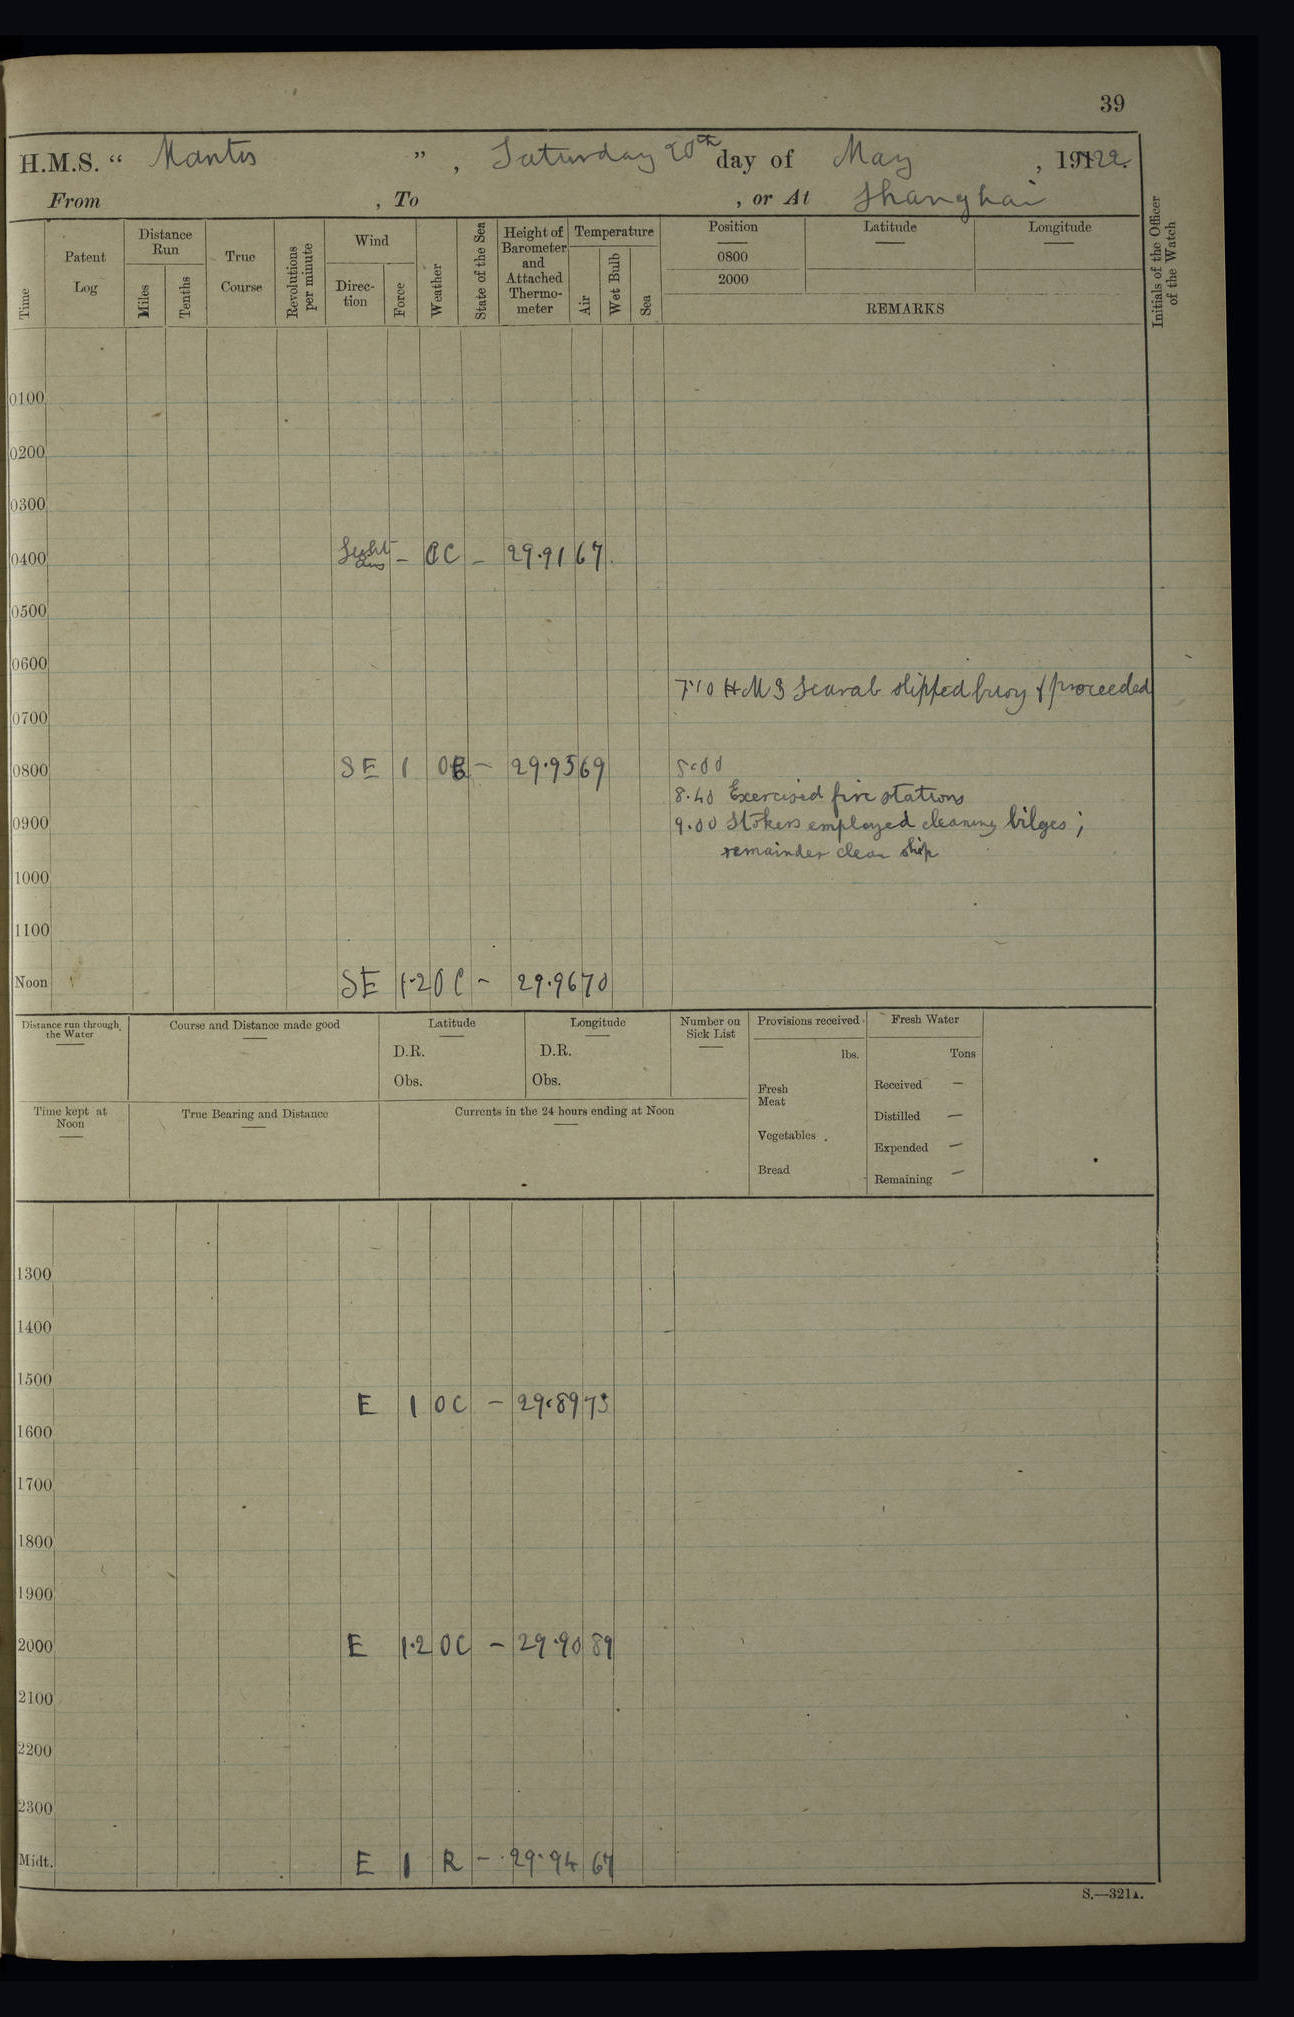 39
H.M.S. “ Mantis ” , Saturday 20th day of May , 1922.
From , To , or At Shanghai
Time
Patent Log
Distance Run
Miles
Tenths
True Course
Revolutions per minute
Wind
Direction
Force
Weather
State of the Sea
Height of Barometer and Attached Thermometer
Temperature
Air
Wet Bulb
Sea
Position
0800
2000
Latitude
Longitude
REMARKS
Initials of the Officer of the Watch
0100
0200
0300
0400 Light airs – OC – 29.91 67
0500
0600
7.10 HMS Scarab slipped buoy & proceeded
0700
0800 SE 1 – 29.95 69
8.40 Exercised fire stations
0900 9.00 Stokers employed cleaning bilges ;
remainder clean ship
1000
1100
Noon SE 1.2 OC – 29.96 70
Distance run through the Water
Course and Distance made good
Latitude
D.R.
Obs.
Longitude
D.R.
Obs.
Number on Sick List
Provisions received
lbs.
Fresh Meat
Vegetables
Bread
Fresh Water
Tons
Received –
Distilled –
Expended –
Remaining –
Time kept at Noon
True Bearing and Distance
Currents in the 24 hours ending at Noon
1300
1400
1500
E 1 OC – 29.89 73
1600
1700
1800
1900
2000 E 1.2 OC – 29.90 89
2100
2200
2300
Midt. E 1 R – 29.94 67
S.—321A.